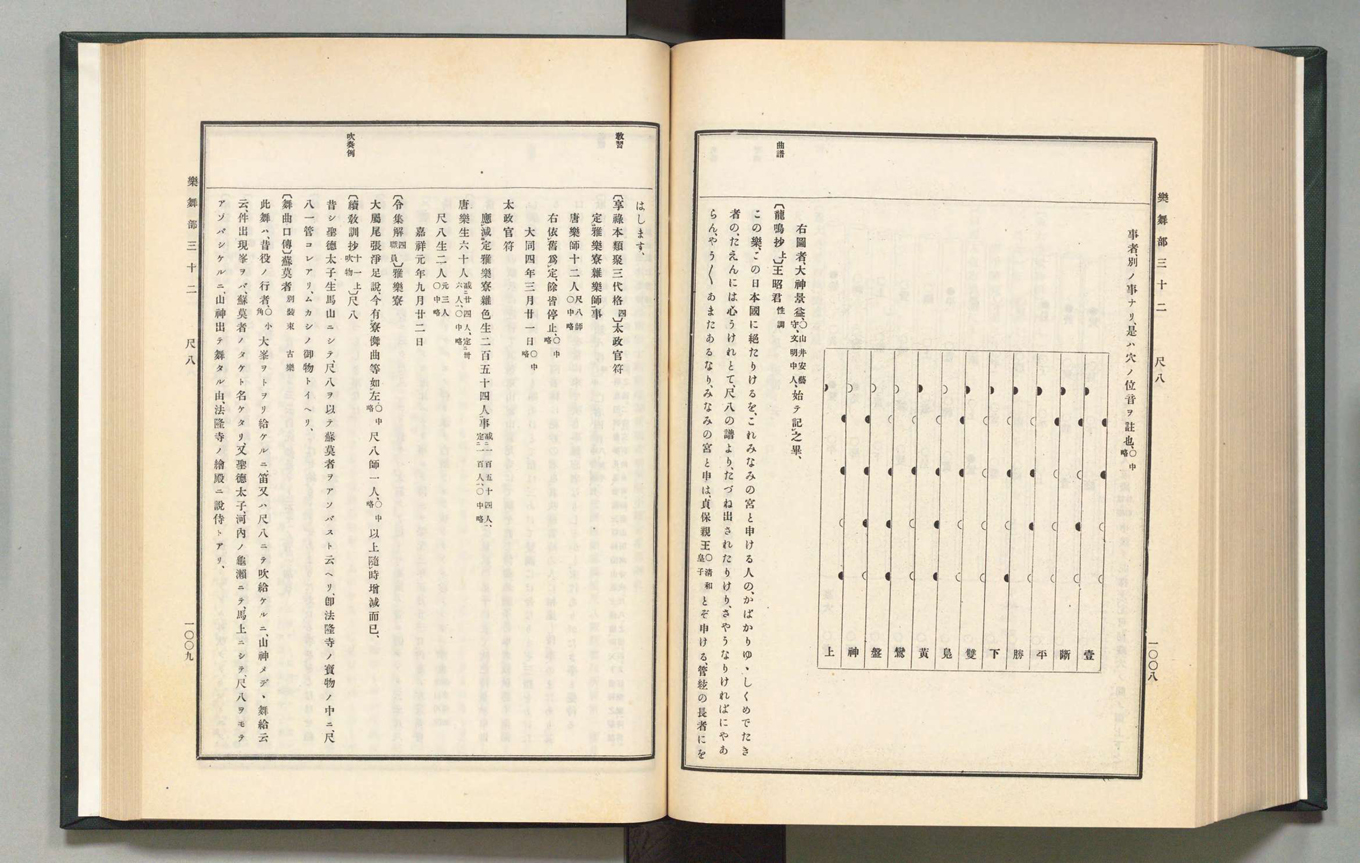 樂舞部三十二 尺八
一〇〇八
事者、別ノ事ナリ、是ハ穴ノ位音ヲ註也、〇中略
壹
斷
平
勝
下
雙
鳧
黃
鸞
盤
神
上
右圖者、大神景益、〇山井安藝守、文明中人、始テ記之畢、
曲譜
〔龍鳴抄上〕王昭君 性調
この樂、この日本國に絕たりけるを、これみなみの宮と申ける人の、かばかりゆゝしくめでたき
者の、たえんには心うけれとて、尺八の譜より、たづね出されたりけり、さやうなりければにやあ
らん、やう〳〵あまたあるなり、みなみの宮と申は、貞保親王〇淸和皇子とぞ申ける、管絃の長者にを
はします、
敎習
〔享祿本類聚三代格四〕太政官符
定雅樂寮雜樂師事
唐樂師十二人〇尺八師中略
右依舊爲定、餘皆停止、〇中略
大同四年三月廿一日〇中略
太政官符
應減定雅樂寮雜色生二百五十四人事 減一百五十四人、定一百人、〇中略
唐樂生六十人 減廿四人、定卅六人、〇中略
尺八生二人 元三人〇中略
嘉祥元年九月廿二日
〔令集解四職員〕雅樂寮
大屬尾張淨足說、今有寮儛曲等如左、〇中略 尺八師一人、〇中略 以上隨時增減而已、
吹奏例
〔續敎訓抄十一上吹物〕尺八
昔シ聖德太子生馬山ニシテ、尺八ヲ以テ蘇莫者ヲアソバスト云ヘリ、卽法隆寺ノ寶物ノ中ニ、尺
八一管コレアリ、ムカシノ御物トイヘリ、
〔舞曲口傳〕蘇莫者 別裝束 古樂
此舞ハ、昔役ノ行者、〇小角大峯ヲトヲリ給ケルニ、笛又ハ尺八ニテ吹給ケルニ、山神メデヽ舞給云
云、件出現峯ヲバ、蘇莫者ノタケト名ケタリ、又聖德太子、河內ノ龜瀨ニテ、馬上ニシテ、尺八ヲモテ
アソバシケルニ、山神出テ舞タル由、法隆寺ノ繪殿ニ說侍トアリ、
樂舞部三十二 尺八
一〇〇九